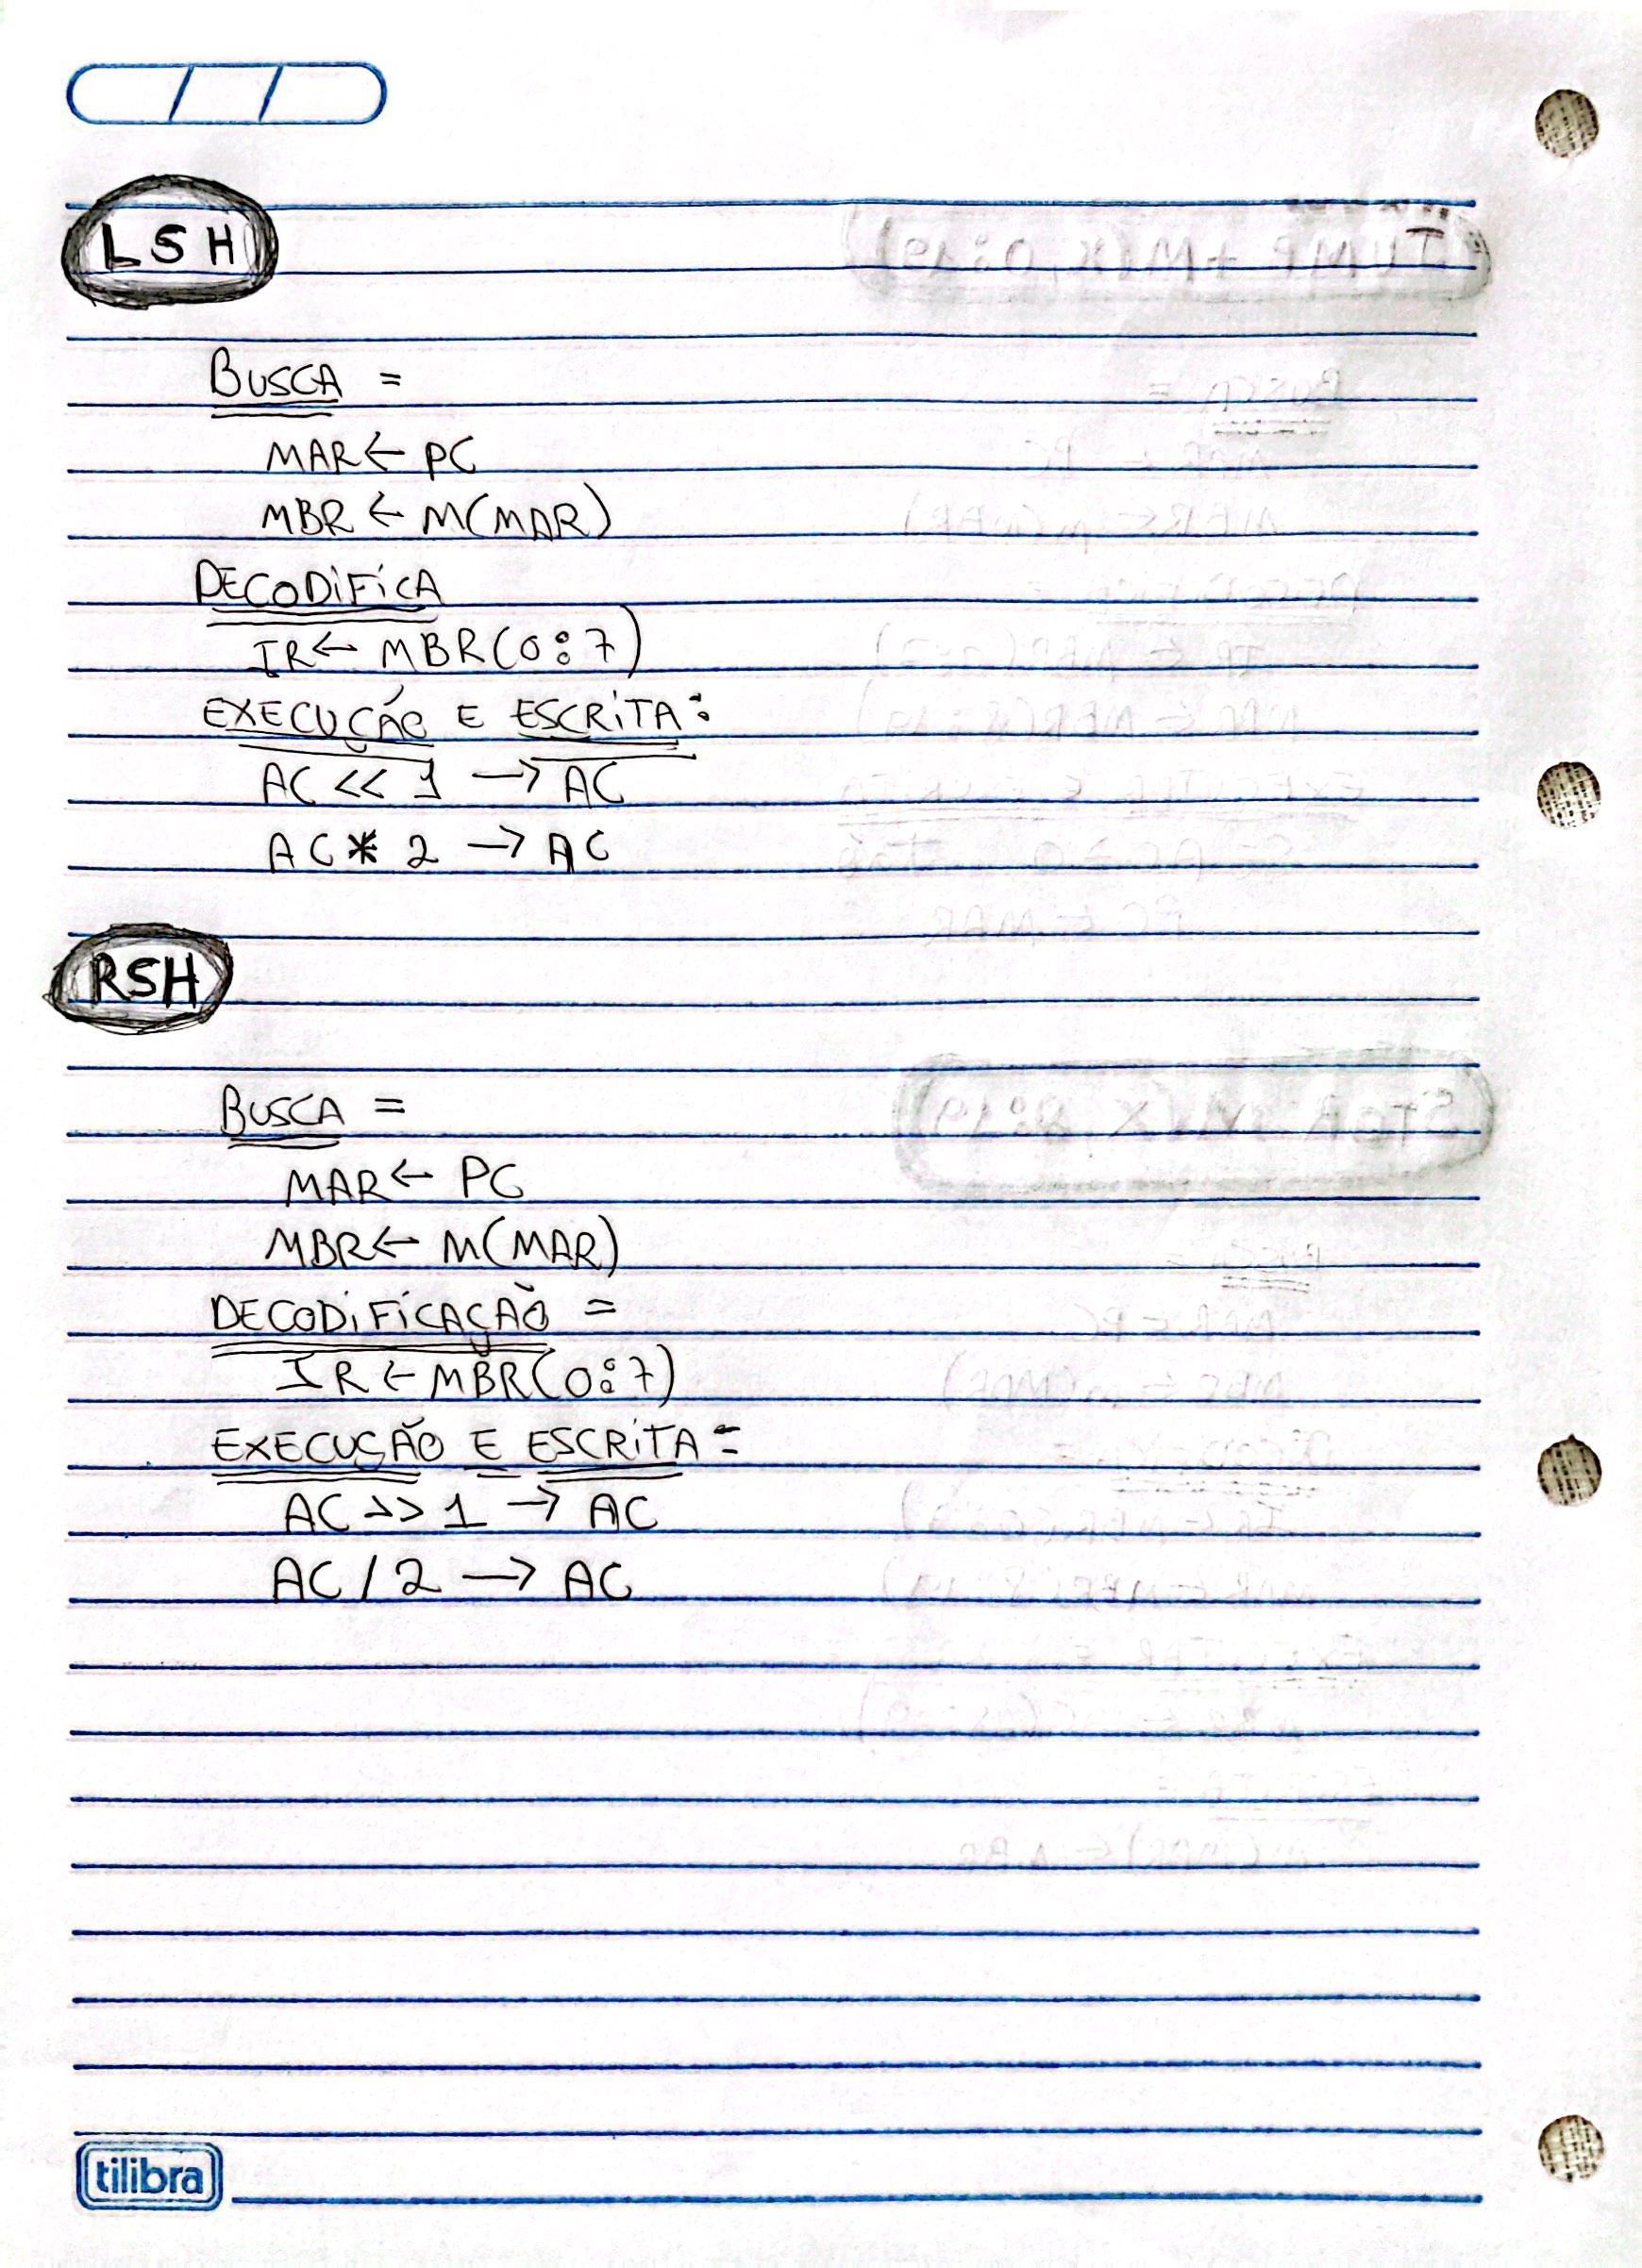 LSH
BUSCA =
MAR ← PC
MBR ← M(MAR)
DECODIFICA
IR ← MBR(0:7)
EXECUÇÃO E ESCRITA:
AC << 1 → AC
AC * 2 → AC
RSH
BUSCA =
MAR ← PC
MBR ← M(MAR)
DECODIFICAÇÃO =
IR ← MBR(0:7)
EXECUÇÃO E ESCRITA =
AC >> 1 → AC
AC / 2 → AC
tilibra